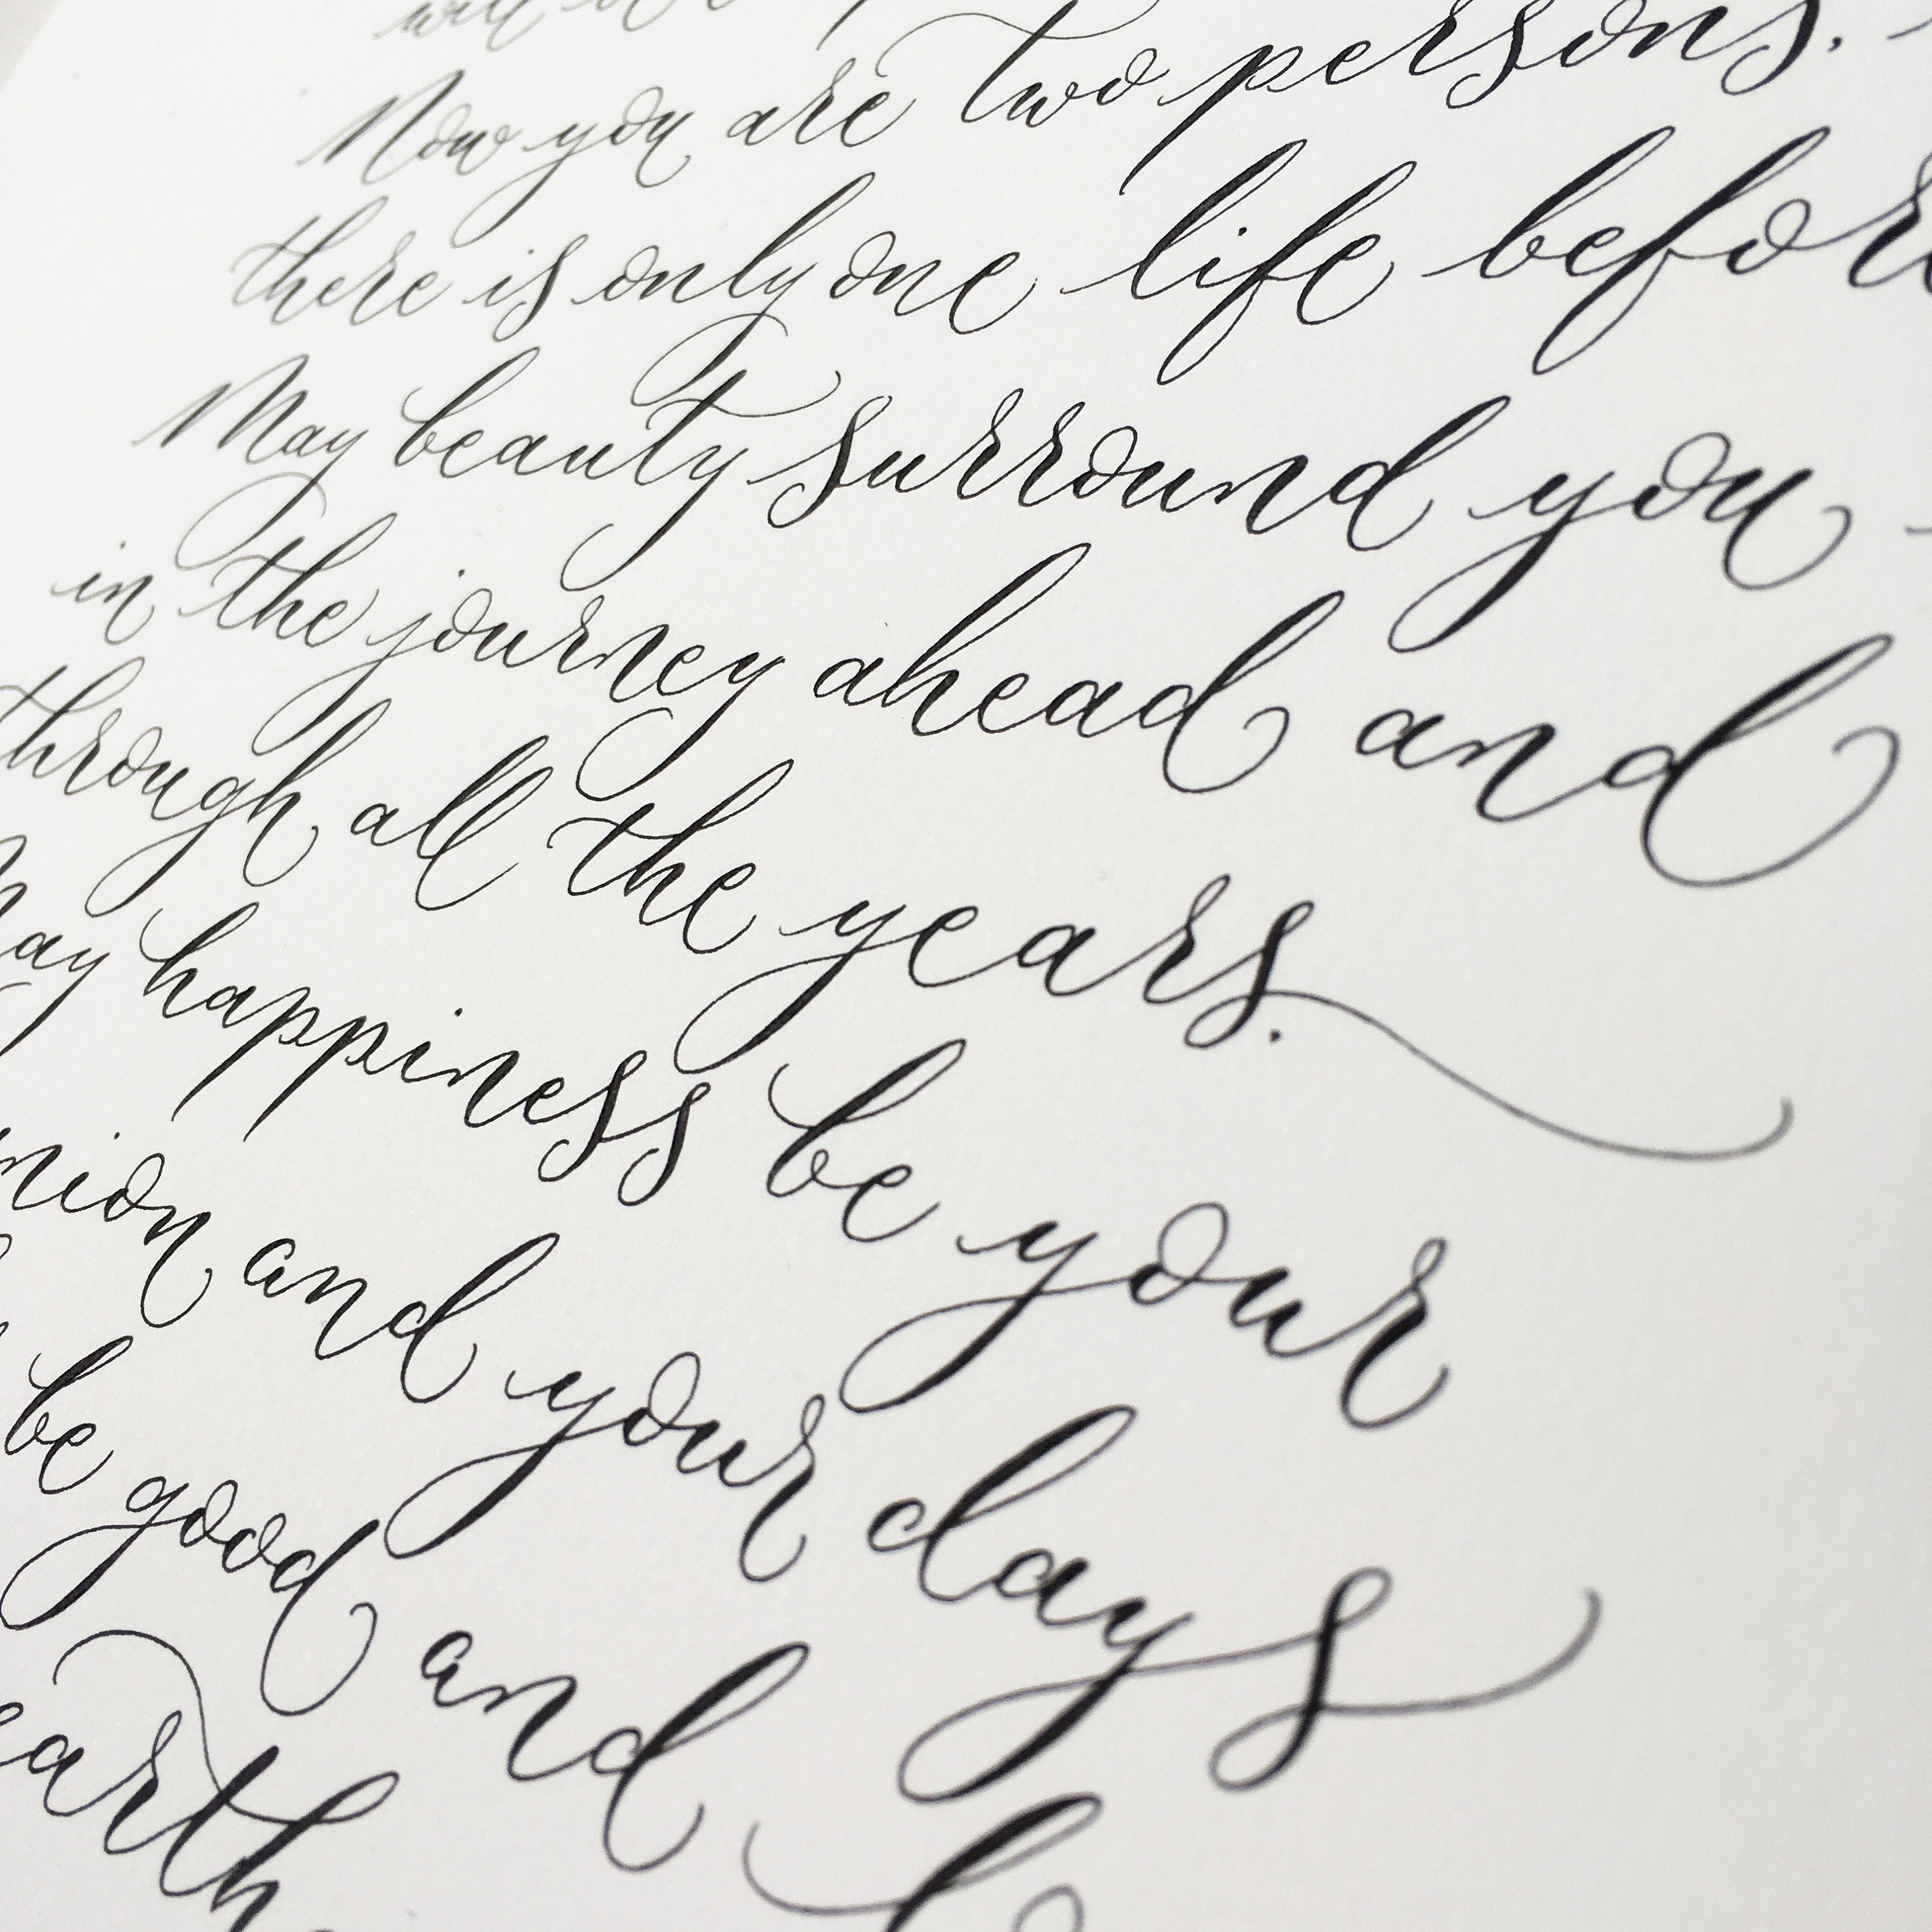 Now you are two persons,
there is only one life
May beauty surround you
in the journey ahead and
through all the years.
May happiness be your
and your days
be good and
earth